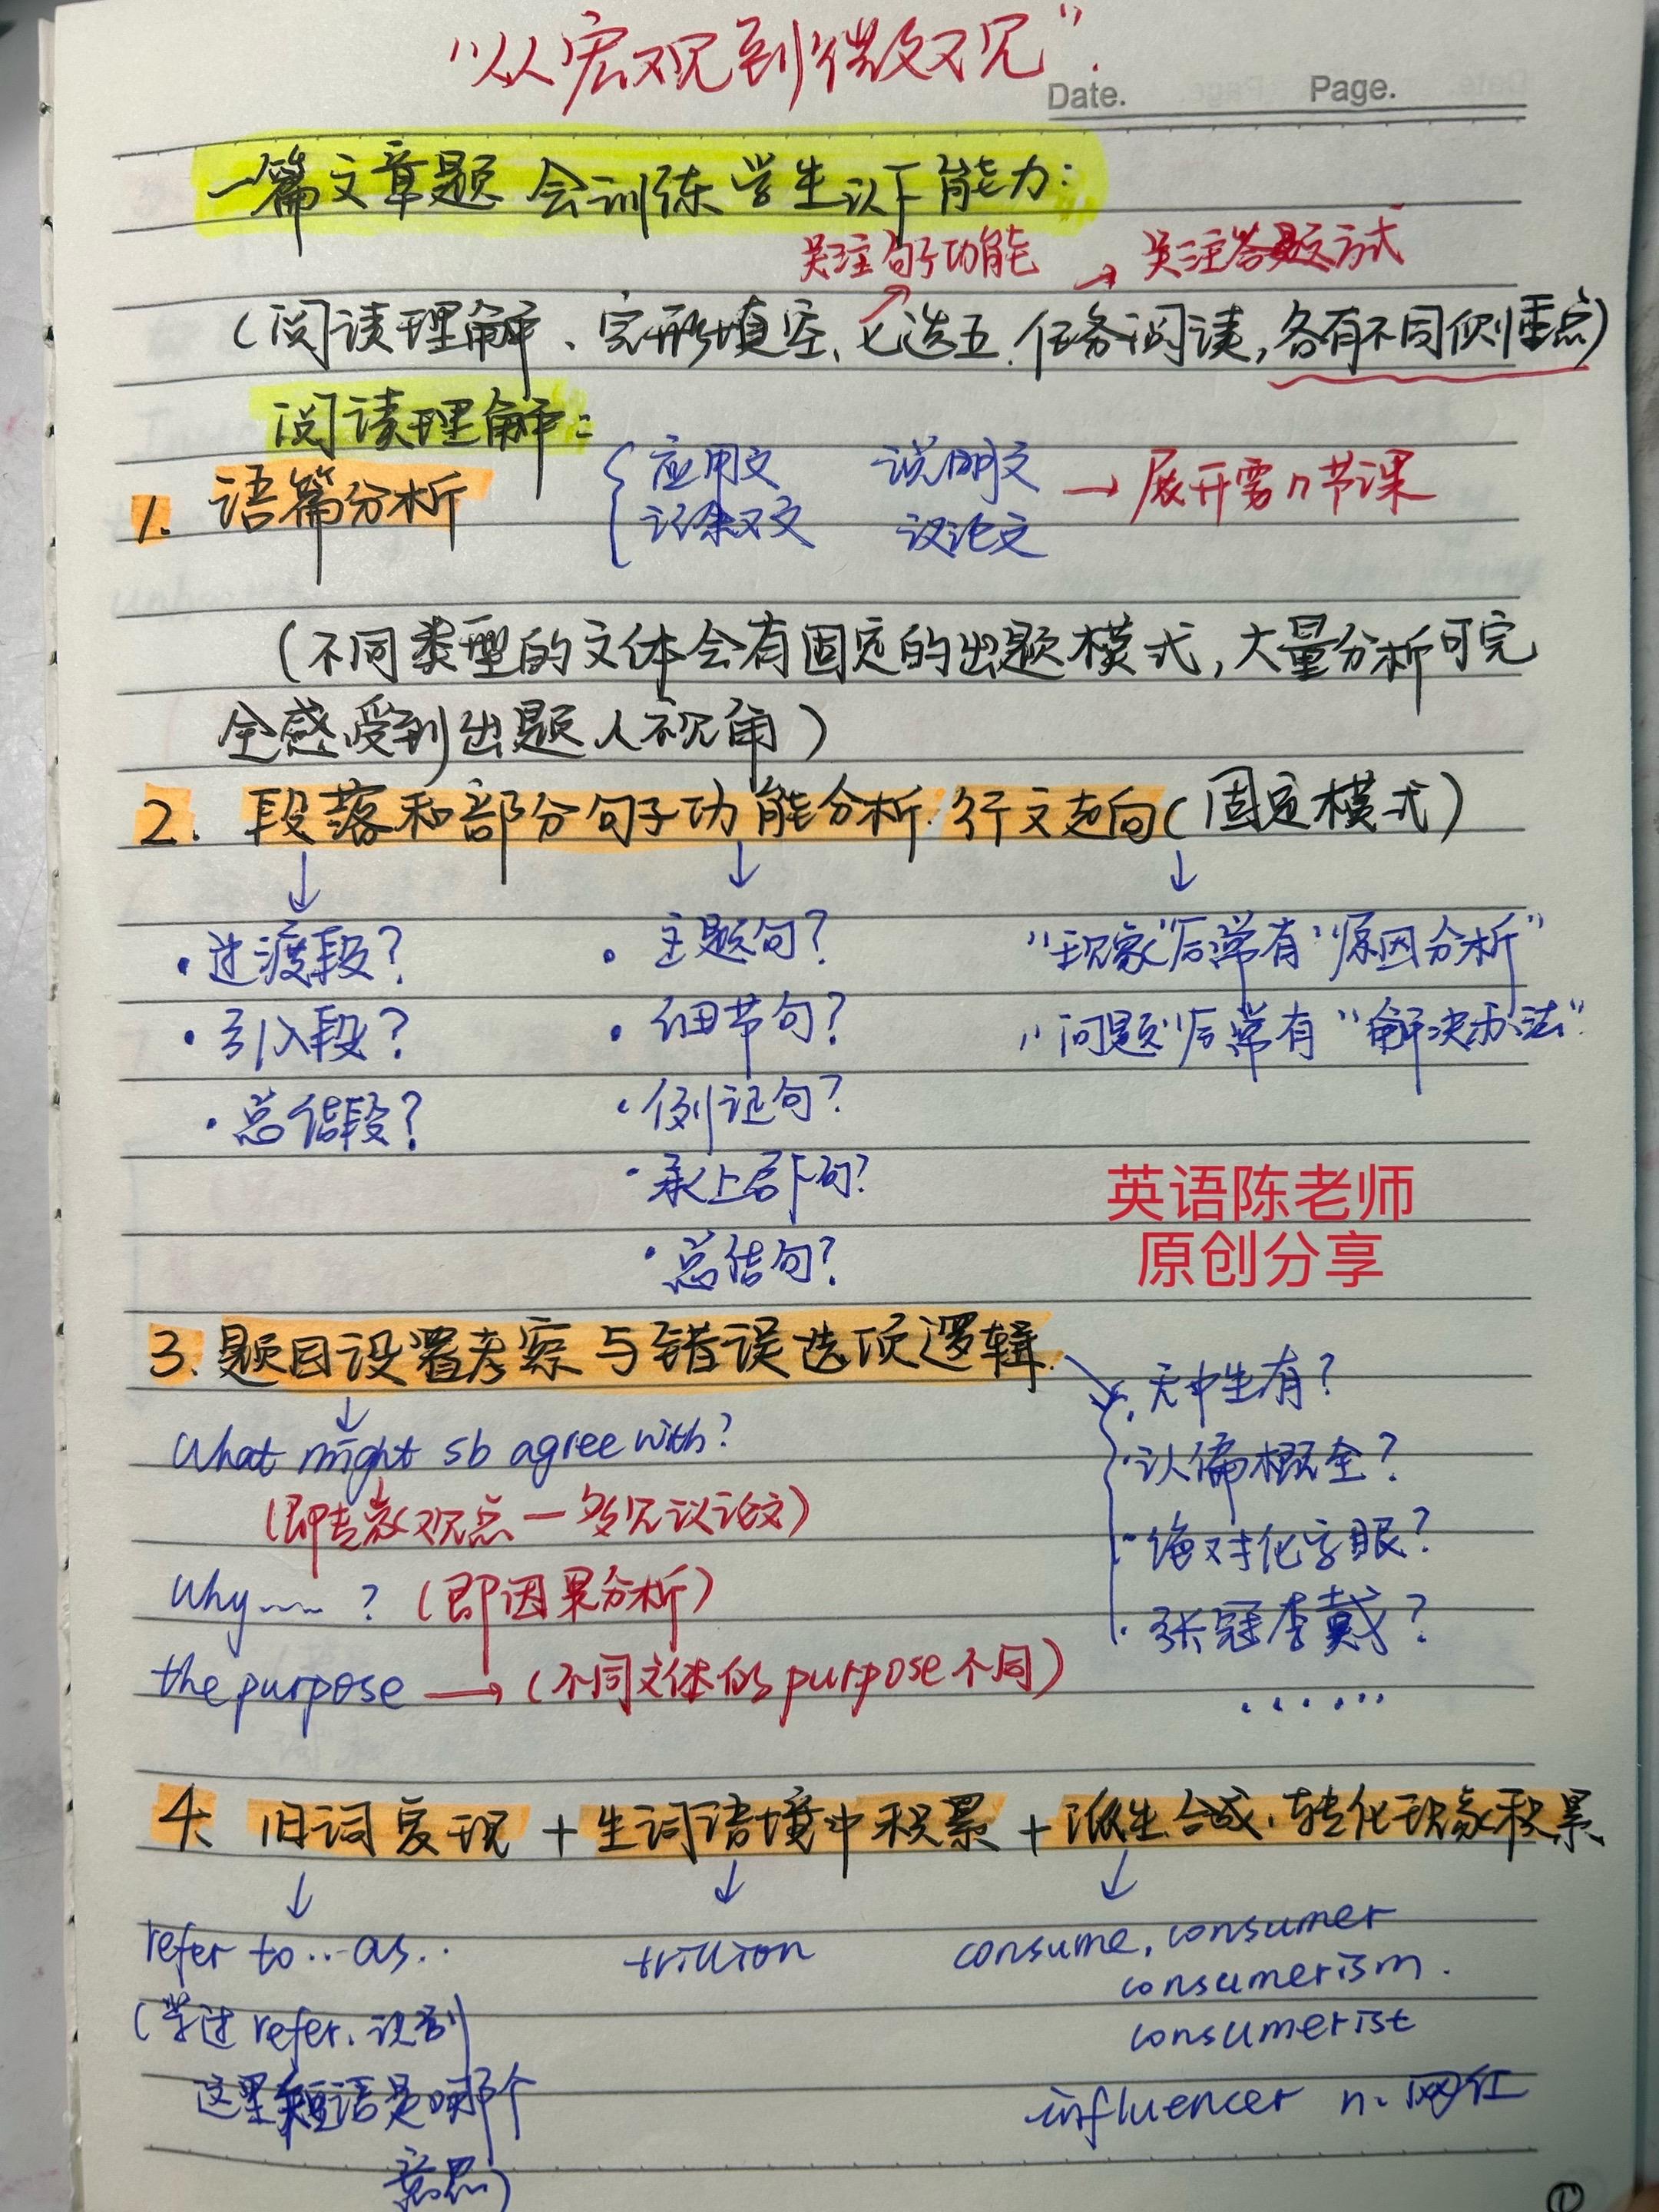 “从宏观到微观”.
Date. Page.
一篇文章题 会训练学生以下能力：
关注句子功能 → 关注答题方式
（阅读理解、完形填空、七选五、任务阅读，各有不同侧重点）
阅读理解：
1. 语篇分析
应用文 说明文 → 展开需n节课
记叙文 议论文
（不同类型的文体会有固定的出题模式，大量分析可完
全感受到出题人视角）
2. 段落和部分句子功能分析. 行文走向（固定模式）
↓ ↓ ↓
·过渡段？ ·主题句？ “现象”后常有“原因分析”
·引入段？ ·细节句？ “问题”后常有“解决办法”
·总结段？ ·例证句？
·承上启下句？
·总结句？
英语陈老师
原创分享
3. 题目设置考察与错误选项逻辑.
·无中生有？
What might sb agree with?
·以偏概全？
（即考察观点一多见议论文）
·绝对化字眼？
Why ...... ?（即因果分析）
·张冠李戴？
the purpose →（不同文体的purpose不同）
......
4. 旧词复现 + 生词语境中积累 + 派生.合成.转化现象积累
↓ ↓ ↓
refer to...as.. trillion consume, consumer
consumerism.
（学过refer.识别 consumerist
这里短语是哪个 influencer n.网红
意思）
①